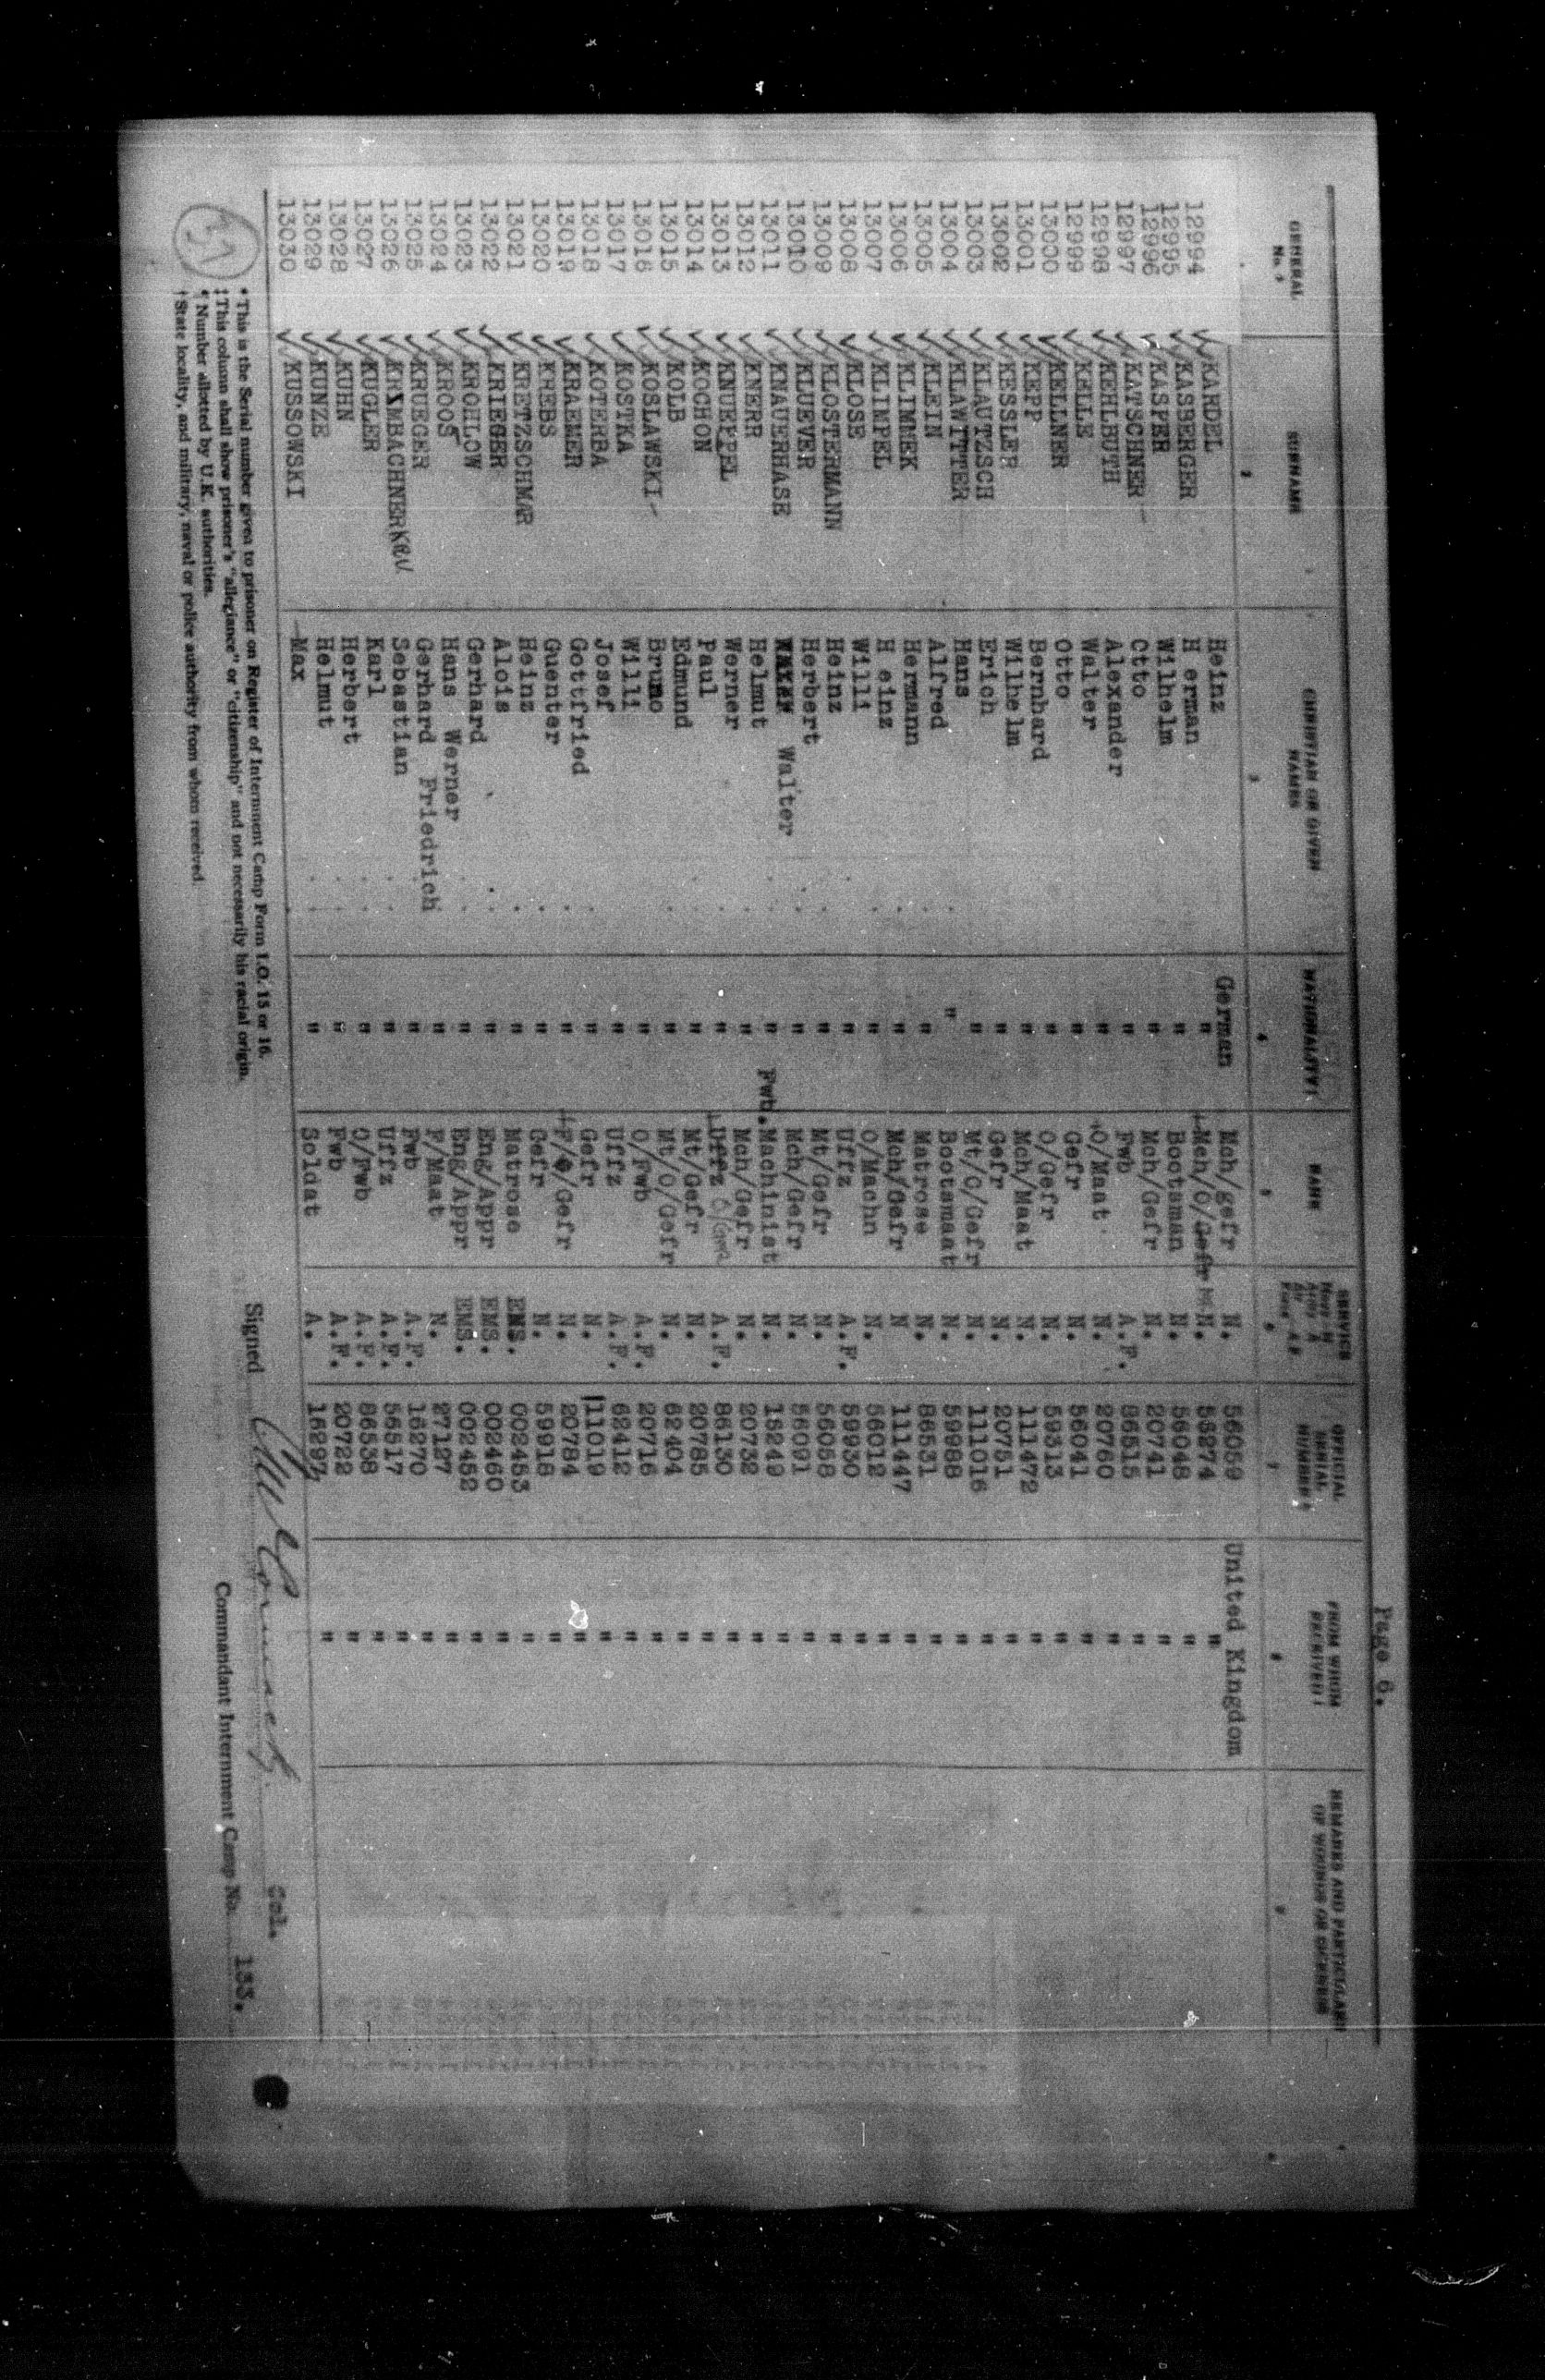 Page 6.
GENERAL No. * SURNAME CHRISTIAN OR GIVEN NAMES NATIONALITY‡ RANK SERVICE Navy N Army A Air Force A.F. OFFICIAL SERIAL NUMBER ¶ FROM WHOM RECEIVED † REMARKS AND PARTICULARS OF WOUNDS OR SICKNESS
2 3 4 5 6 7 8 9
12994 KARDEL Heinz German Mch/gefr N. 56059 United Kingdom
12995 KASBERGER H erman " Mch/O/Gefr N. 56274 "
12996 KASPER Wilhelm " Bootsman N. 56048 "
12997 KATSCHNER Otto " Mch/Gefr N. 20741 "
12998 KEHLBUTH Alexander " Fwb A.F. 86515 "
12999 KELLE Walter " O/Maat N. 20760 "
13000 KELLNER Otto " Gefr N. 56041 "
13001 KEPP Bernhard " O/Gefr N. 59313 "
13002 KESSLER Wilhelm " Mch/Maat N. 111472 "
13003 KLAUTZSCH Erich " Gefr N. 20751 "
13004 KLAWITTER Hans " Mt/O/Gefr N. 111016 "
13005 KLEIN Alfred " Bootsmaat N. 59988 "
13006 KLIMMEK Hermann " Matrose N. 86531 "
13007 KLIMPEL H einz " Mch/Gefr N 111447 "
13008 KLOSE Willi " O/Machn N. 56012 "
13009 KLOSTERMANN Heinz " Uffz A.F. 59930 "
13010 KLUEVER Herbert " Mt/Gefr N. 56058 "
13011 KNAUERHASE Walter " Mch/Gefr N. 56091 "
13012 KNERR Helmut " Fwb. Machinist N. 15249 "
13013 KNUEPPEL Werner " Mch/Gefr N. 20732 "
13014 KOCHON Paul " Uffz A.F. 86130 "
13015 KOLB Edmund " Mt/Gefr N. 20785 "
13016 KOSLAWSKI Bruno " Mt/O/Gefr N. 62404 "
13017 KOSTKA Willi " O/Fwb A.F. 20716 "
13018 KOTERBA Josef " Uffz A.F. 62412 "
13019 KRAEMER Gottfried " Gefr N. 111019 "
13020 KREBS Guenter " F/O/Gefr N. 20784 "
13021 KRETZSCHMAR Heinz " Gefr N. 59918 "
13022 KRIEGER Alois " Matrose EMS. 002453 "
13023 KROHLOW Gerhard " Eng/Appr EMS. 002460 "
13024 KROOS Hans Werner " Eng/Appr EMS. 002452 "
13025 KRUEGER Gerhard Friedrich " F/Maat N. 27127 "
13026 KRUMBACHNER KRU Sebastian " Fwb A.F. 16270 "
13027 KUGLER Karl " Uffz A.F. 56517 "
13028 KUHN Herbert " O/Fwb A.F. 86538 "
13029 KUNZE Helmut " Fwb A.F. 20722 "
13030 KUSSOWSKI Max " Soldat A. 16297 "
* This is the Serial number given to prisoner on Register of Internment Camp Form I.O. 15 or 16.
‡ This column shall show prisoner's "allegiance" or "citizenship" and not necessarily his racial origin.
¶ Number allotted by U.K. authorities.
† State locality, and military, naval or police authority from whom received.
37
Signed Col.
Commandant Internment Camp No. 133.